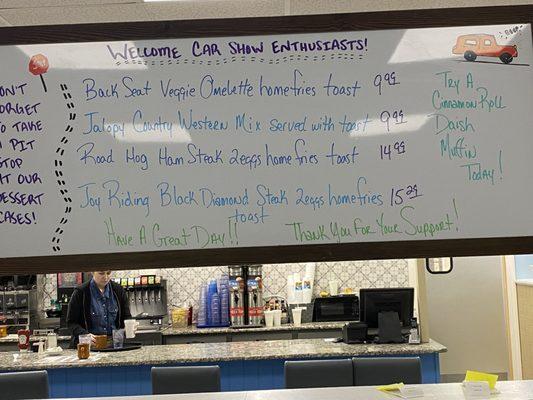 Welcome Car Show Enthusiasts!
Back Seat Veggie Omelette homefries toast 9.99
Jalopy Country Western Mix served with toast 9.99
Road Hog Ham Steak 2eggs homefries toast 14.99
Joy Riding Black Diamond Steak 2eggs homefries 15.29
toast
Have A Great Day!!
Thank You For Your Support!
Try A
Cinnamon Roll
Daish
Muffin
Today!
Don't
Forget
To Take
A Pit
Stop
At Our
Dessert
Cases!